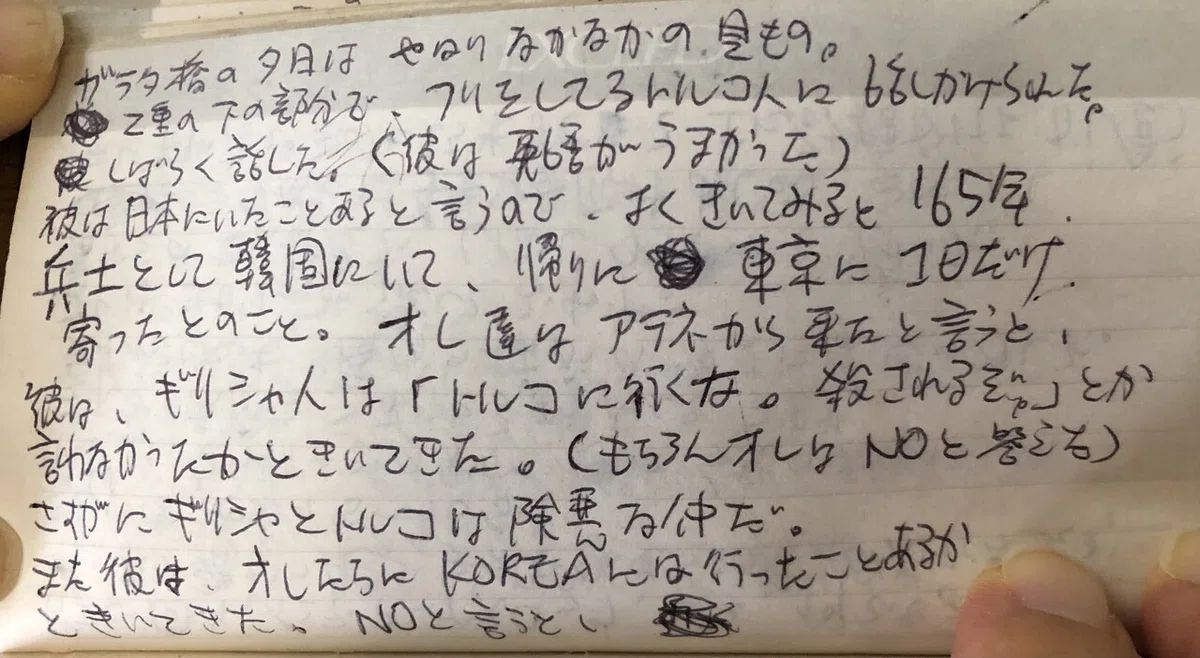 ガラタ橋の夕日は やはり なかなかの 見もの。
2重の下の部分で、フリをしてるトルコ人に 話しかけられた。
しばらく話した。(彼は英語がうまかった)
彼は日本にいたことあると言うので、よくきいてみると 165年、
兵士として韓国にいて、帰りに 東京に1日だけ
寄ったとのこと。オレ達はアテネから来たと言うと、
彼は、ギリシャ人は「トルコに行くな。殺されるぞ。」とか
言わなかったかときいてきた。(もちろんオレはNOと答えた)
さすがにギリシャとトルコは険悪な仲だ。
また彼は、オレたちにKOREAには行ったことあるか
ときいてきた。NOと言うと、